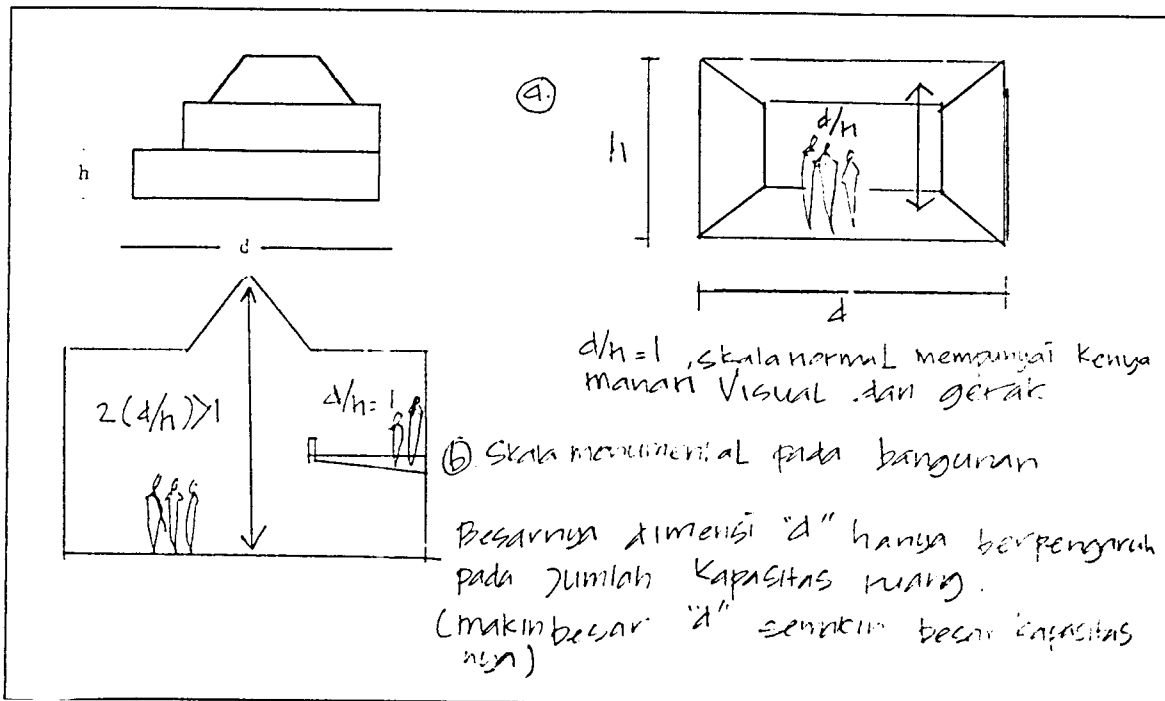 h
d
2(d/h)>1
d/h=1
a.
h
d/h
d
d/h=1, skala normal mempunyai kenya
manan visual dan gerak
b. Skala monumental pada bangunan
Besarnya dimensi "d" hanya berpengaruh
pada jumlah kapasitas ruang.
(makin besar "d" semakin besar kapasitas
nya)